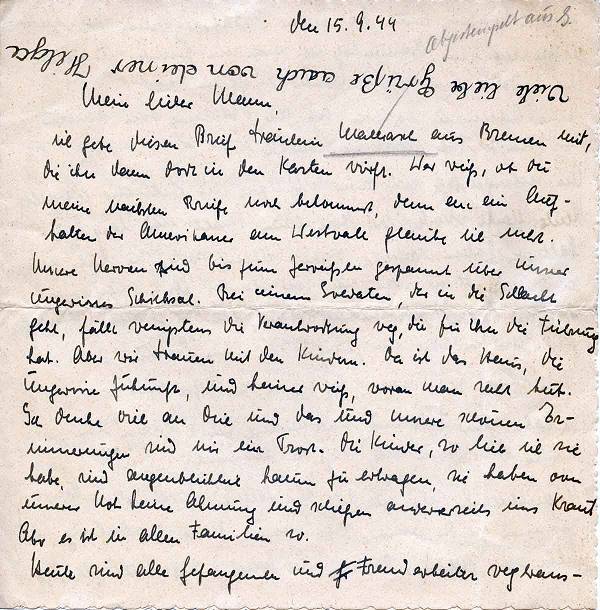 den 15.9.44
Abgestempelt aus
Viele liebe Grüße auch von deiner Helga
Mein lieber Mann,
ich gebe diesen Brief Fräulein aus Bremen mit,
die ihn dann dort in den Kasten wirft. Wer weiß, ob du
meine nächsten Briefe noch bekommst, denn an ein Auf-
halten der Amerikaner am Westwall glaube ich nicht.
Unsere Nerven sind bis zum Zerreißen gespannt über unser
ungewisses Schicksal. Bei einem Soldaten, der in die Schlacht
geht, fällt wenigstens die Verantwortung weg, die für ihn die Führung
hat. Aber wir Frauen mit den Kindern. Da ist das Haus, die
ungewisse Zukunft, und keiner weiß, woran man recht tut.
Ich denke viel an Dich und das und unsere schönen Er-
innerungen sind mir ein Trost. Die Kinder, so lieb ich sie
habe, sind augenblicklich kaum zu ertragen, sie haben von
unserer Not keine Ahnung und schießen andererseits ins Kraut
Aber es ist in allen Familien so.
Heute sind alle Gefangenen und Fremdarbeiter weg